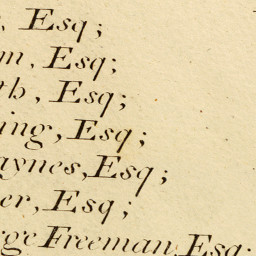 , Esq;
m, Esq;
th, Esq;
ing, Esq;
aynes, Esq;
er, Esq;
rge Freeman, Esq;